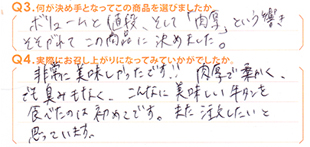 Q3.何が決め手となってこの商品を選びましたか
ボリュームと値段、そして「肉厚」という響き
そそがれてこの商品に決めました。
Q4.実際にお召し上がりになってみていかがでしたか。
非常に美味しかったです!! 肉厚で柔かく、
でも臭みもなく、こんなに美味しい牛タンを
食べたのは初めてです。また注文したいと
思っています。